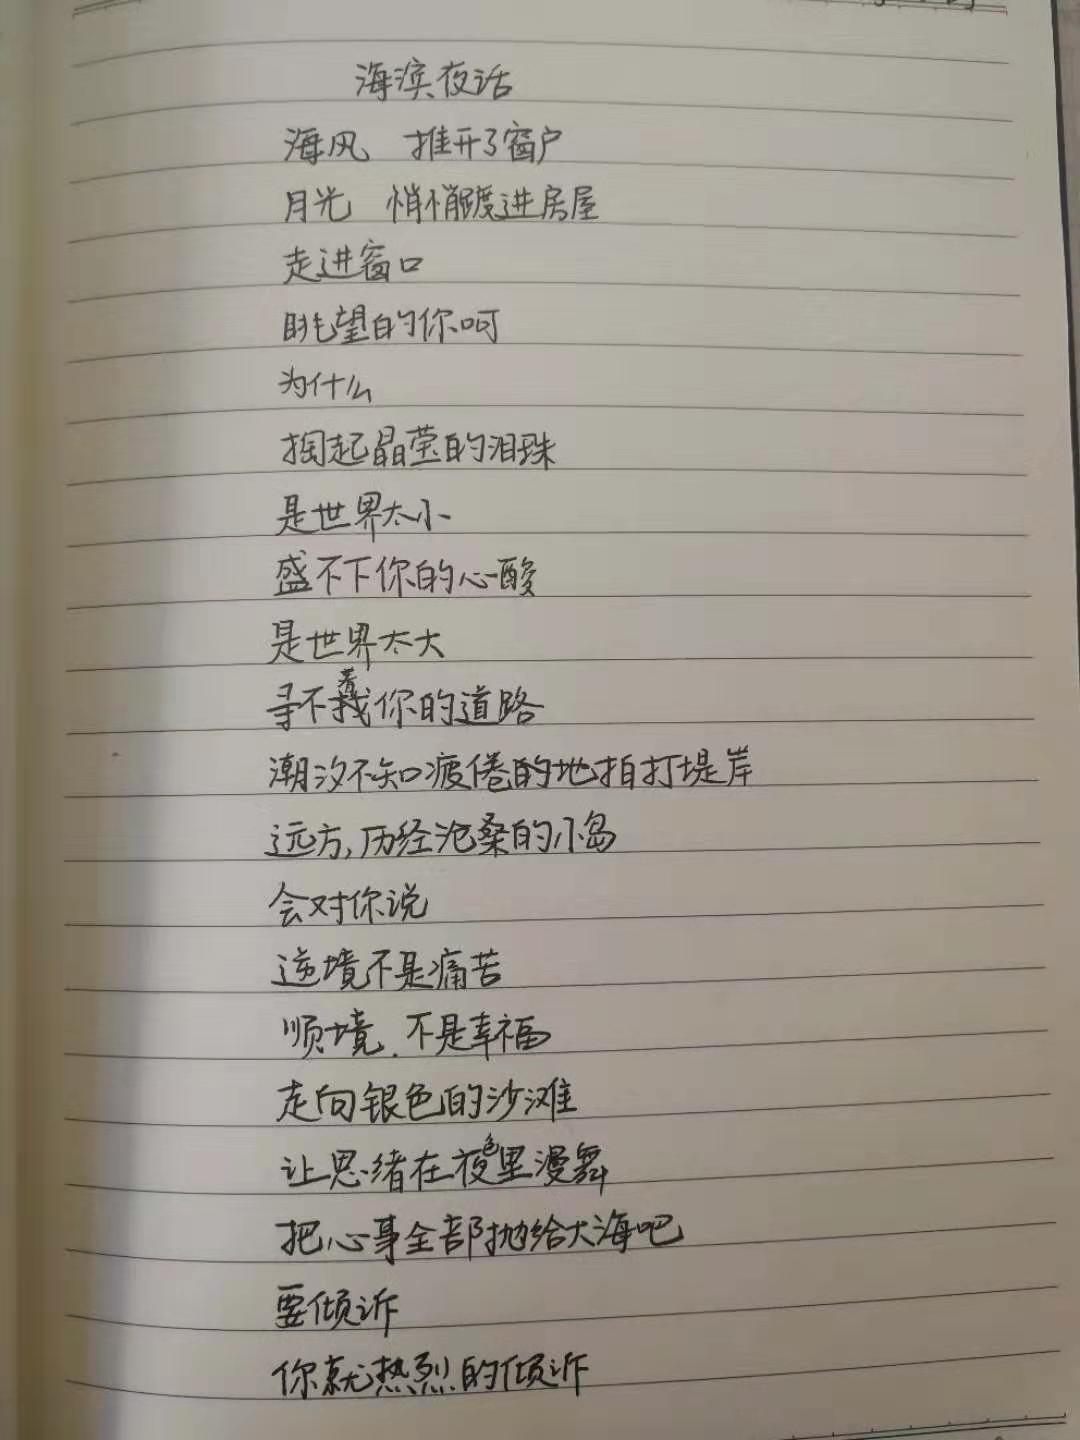 海滨夜话
海风 推开了窗户
月光 悄悄踱进房屋
走进窗口
眺望的你呵
为什么
掏起晶莹的泪珠
是世界太小
盛不下你的心酸
是世界太大
寻不着你的道路
潮汐不知疲倦的地拍打堤岸
远方,历经沧桑的小岛
会对你说
逆境不是痛苦
顺境.不是幸福
走向银色的沙滩
让思绪在夜色里漫舞
把心事全部抛给大海吧
要倾诉
你就热烈的倾诉